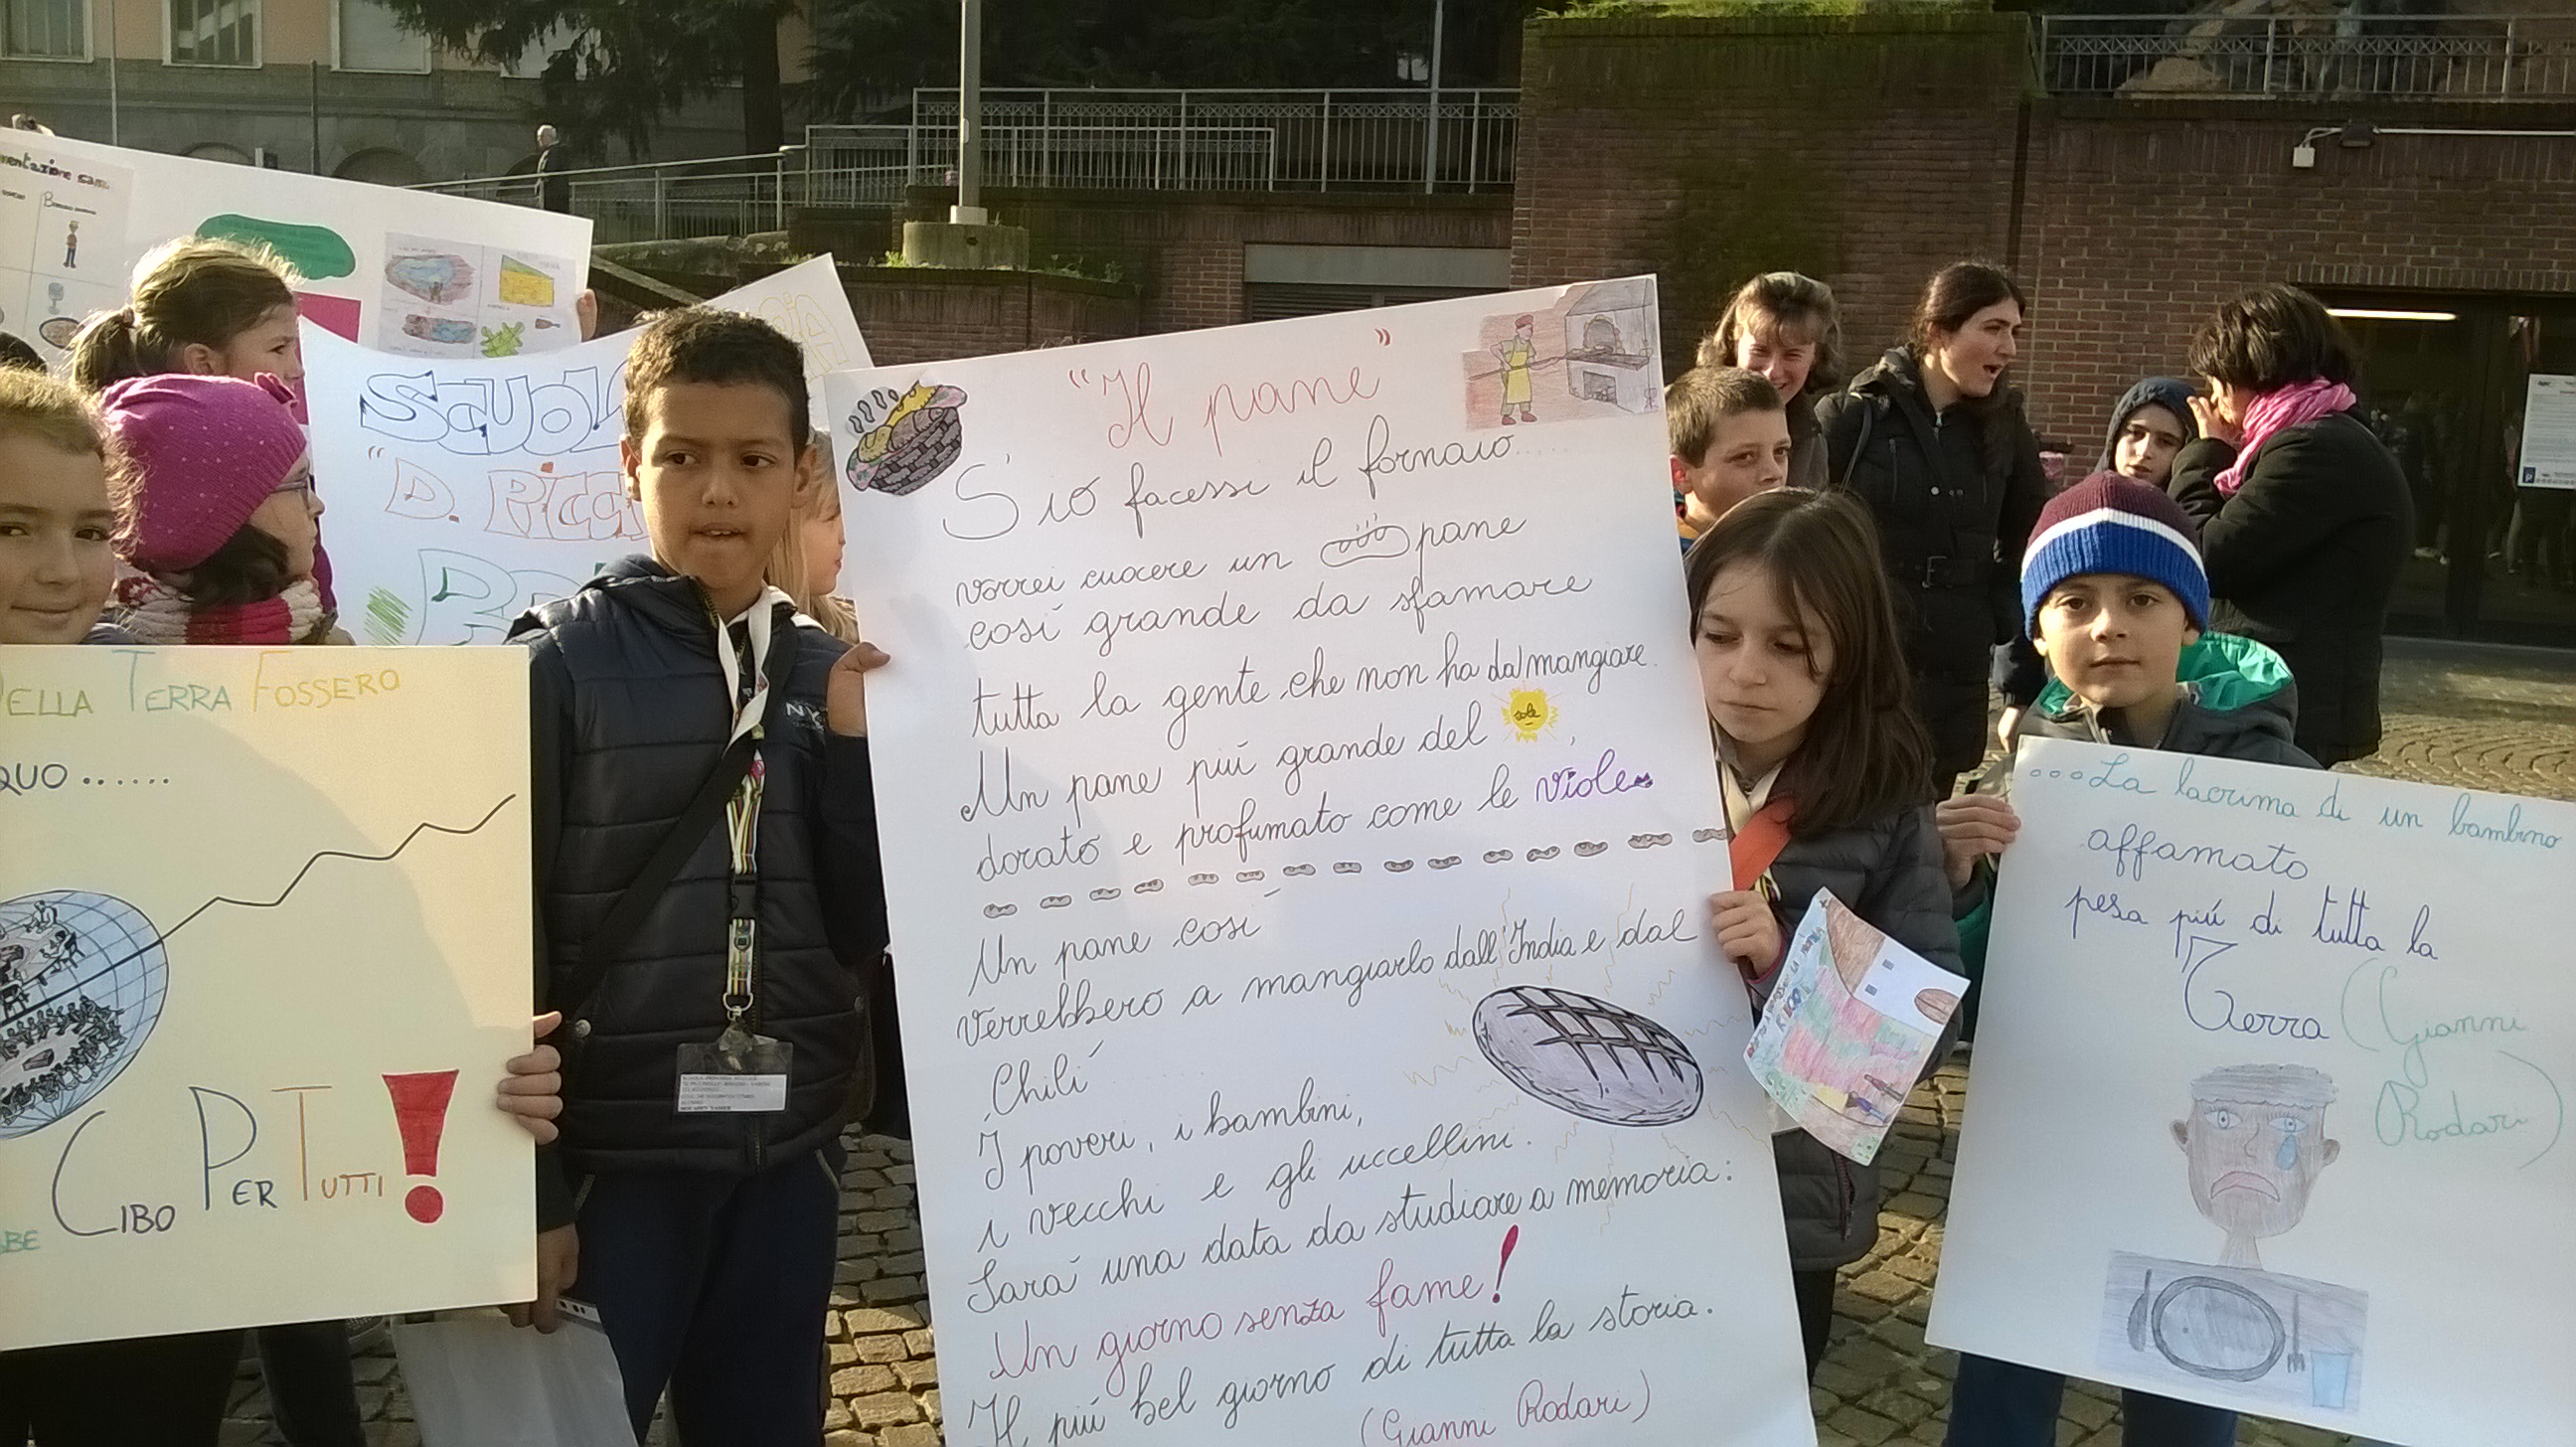 SCUOL
"D. PICC
DELLA TERRA FOSSERO
QUO ......
CIBO PER TUTTI!
"Il pane"
S'io facessi il fornaio......
vorrei cuocere un pane
così grande da sfamare
tutta la gente che non ha da mangiare.
Un pane più grande del sole,
dorato e profumato come le viole
Un pane così
verrebbero a mangiarlo dall'India e dal
Chilì
I poveri, i bambini,
i vecchi e gli uccellini.
Sarà una data da studiare a memoria:
Un giorno senza fame!
Il più bel giorno di tutta la storia.
(Gianni Rodari)
...La lacrima di un bambino
affamato
pesa più di tutta la
Terra (Gianni
Rodari)